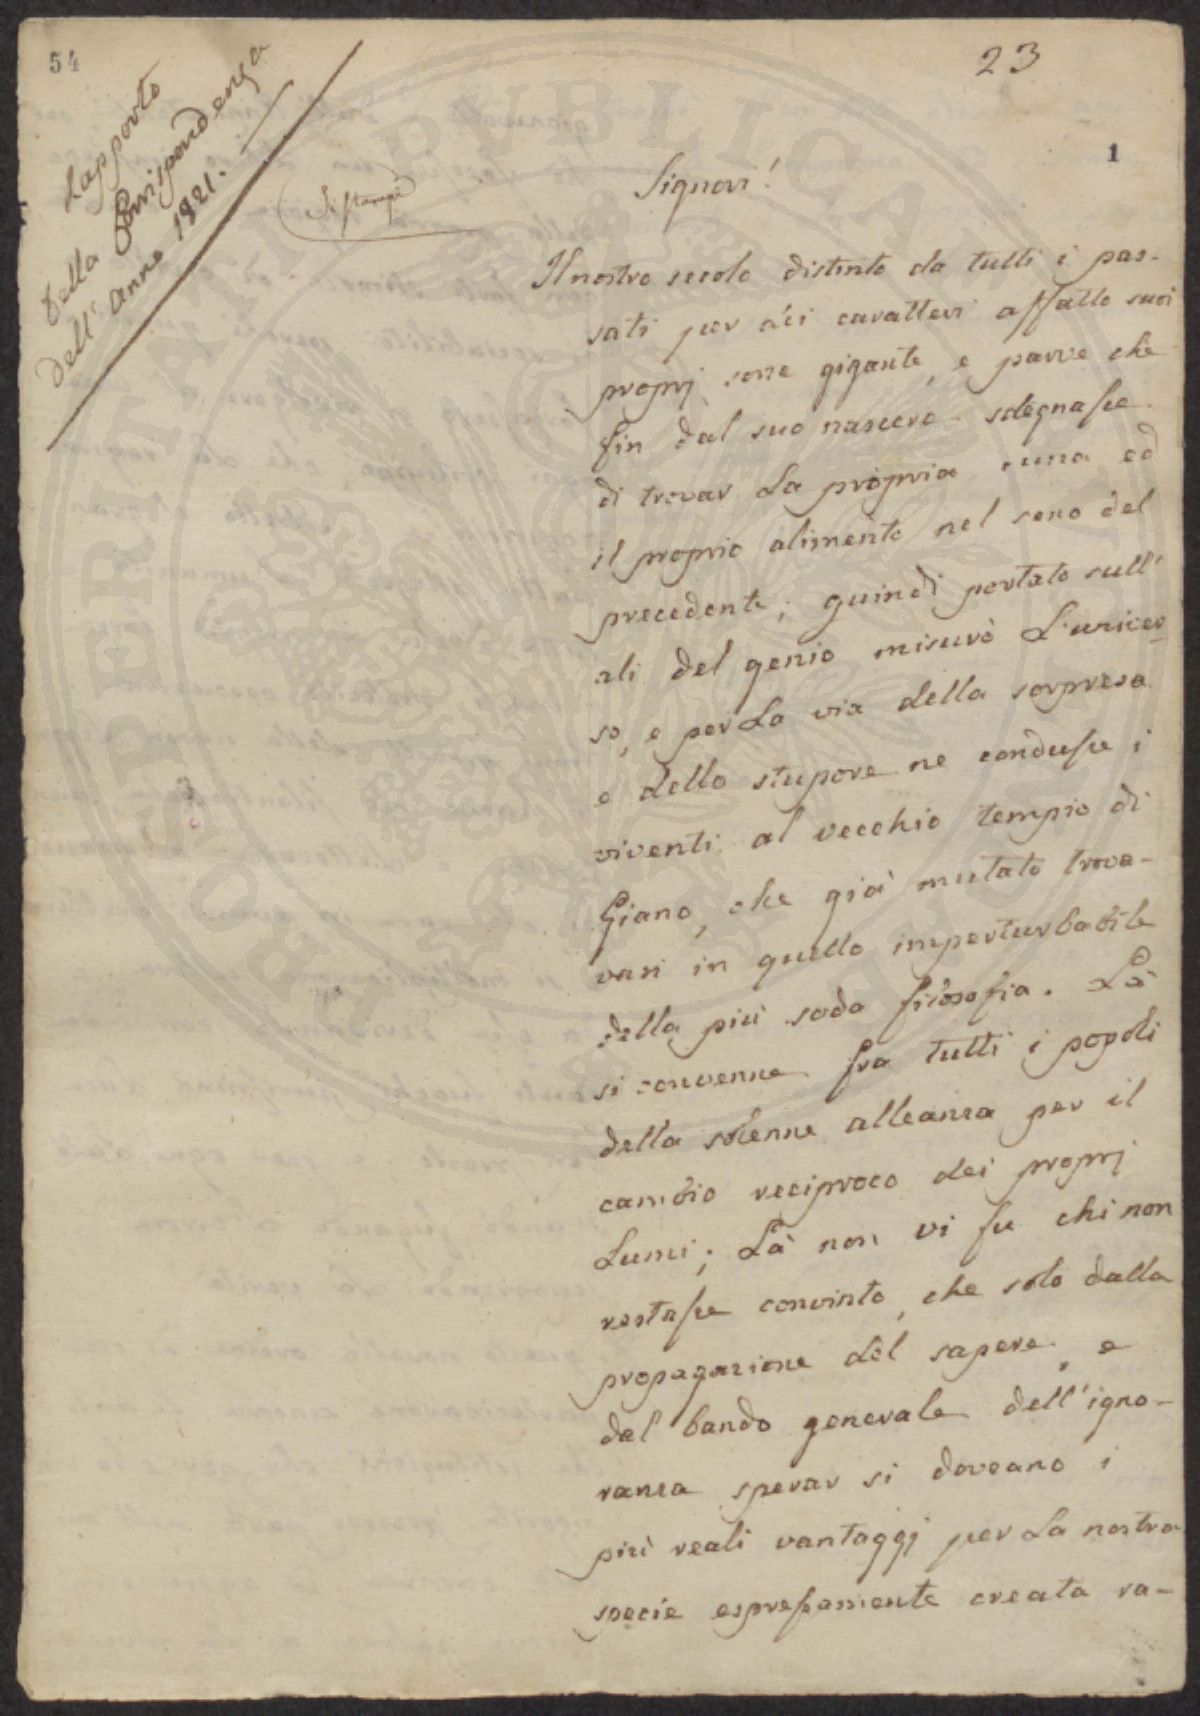 54
23
1
Rapporto
della Corrispondenza
dell'anno 1821.
Si stampi
Signori!
Il nostro secolo distinto da tutti i pas-
sati per dei caratteri affatto suoi
proprj sorse gigante, e parve che
fin dal suo nascere sdegnasse
di trovar la propria cuna ed
il proprio alimento nel seno del
precedente; quindi portato sull'
ali del genio misurò l'univer-
so, e per la via della sorpresa
e dello stupore ne condusse i
viventi al vecchio tempio di
Giano, che già mutato trova-
vasi in quello imperturbabile
della più soda filosofia. Là
si convenne fra tutti i popoli
della solenne alleanza per il
cambio reciproco dei proprj
lumi; Là non vi fu chi non
restasse convinto, che solo dalla
propagazione del sapere, e
dal bando generale dell'igno-
ranza sperar si doveano i
più reali vantaggj per la nostra
specie espressamente creata ra-
PERIZIA IN PVBLICAE